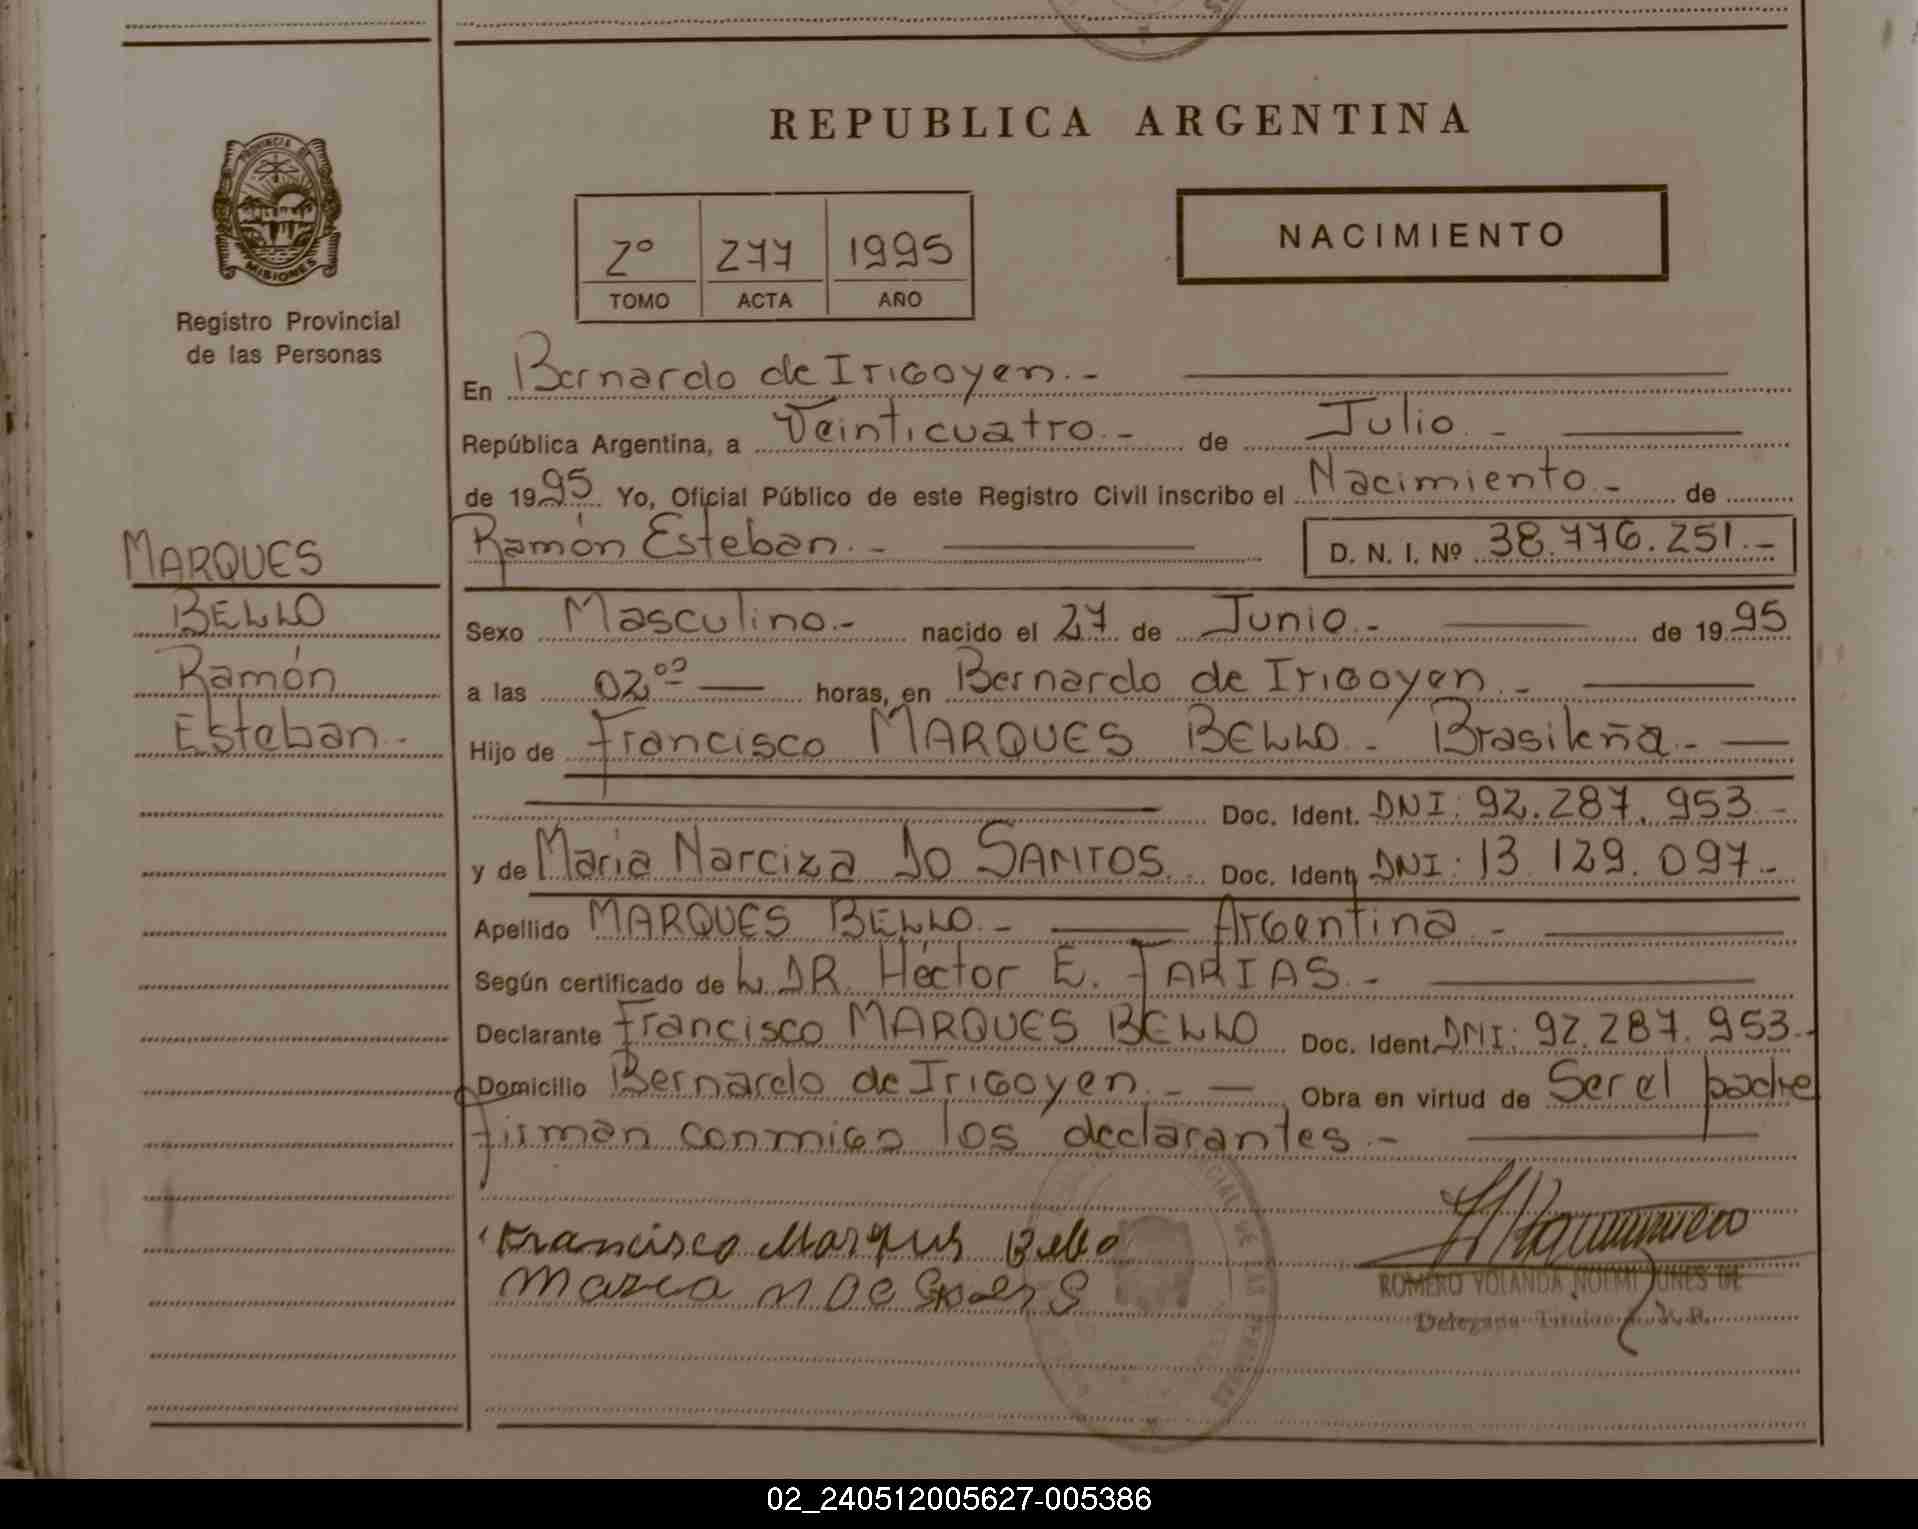 REPUBLICA ARGENTINA
PROVINCIA DE
MISIONES
Registro Provincial
de las Personas
2º 277 1995
TOMO ACTA AÑO
NACIMIENTO
En Bernardo de Irigoyen.-
República Argentina, a Veinticuatro.- de Julio.-
de 1995 Yo, Oficial Público de este Registro Civil inscribo el Nacimiento.- de
Ramón Esteban.- D. N. I. Nº 38.776.251.-
MARQUES
BELLO
Ramón
Esteban.-
Sexo Masculino.- nacido el 27 de Junio.- de 1995
a las 02⁰⁰ horas, en Bernardo de Irigoyen.-
Hijo de Francisco MARQUES BELLO.- Brasileña.-
Doc. Ident. DNI: 92.287.953.-
y de Maria Narciza DO SANTOS. Doc. Ident. DNI: 13.129.097.-
Apellido MARQUES BELLO.- Argentina.-
Según certificado de L. DR. Héctor E. FARIAS.-
Declarante Francisco MARQUES BELLO Doc. Ident. DNI: 92.287.953.-
Domicilio Bernardo de Irigoyen.- Obra en virtud de Ser el padre
firman conmigo los declarantes.-
Francisco Marques Bello
Maria
ROMERO YOLANDA NOEMI
Delegada Titular
02_240512005627-005386